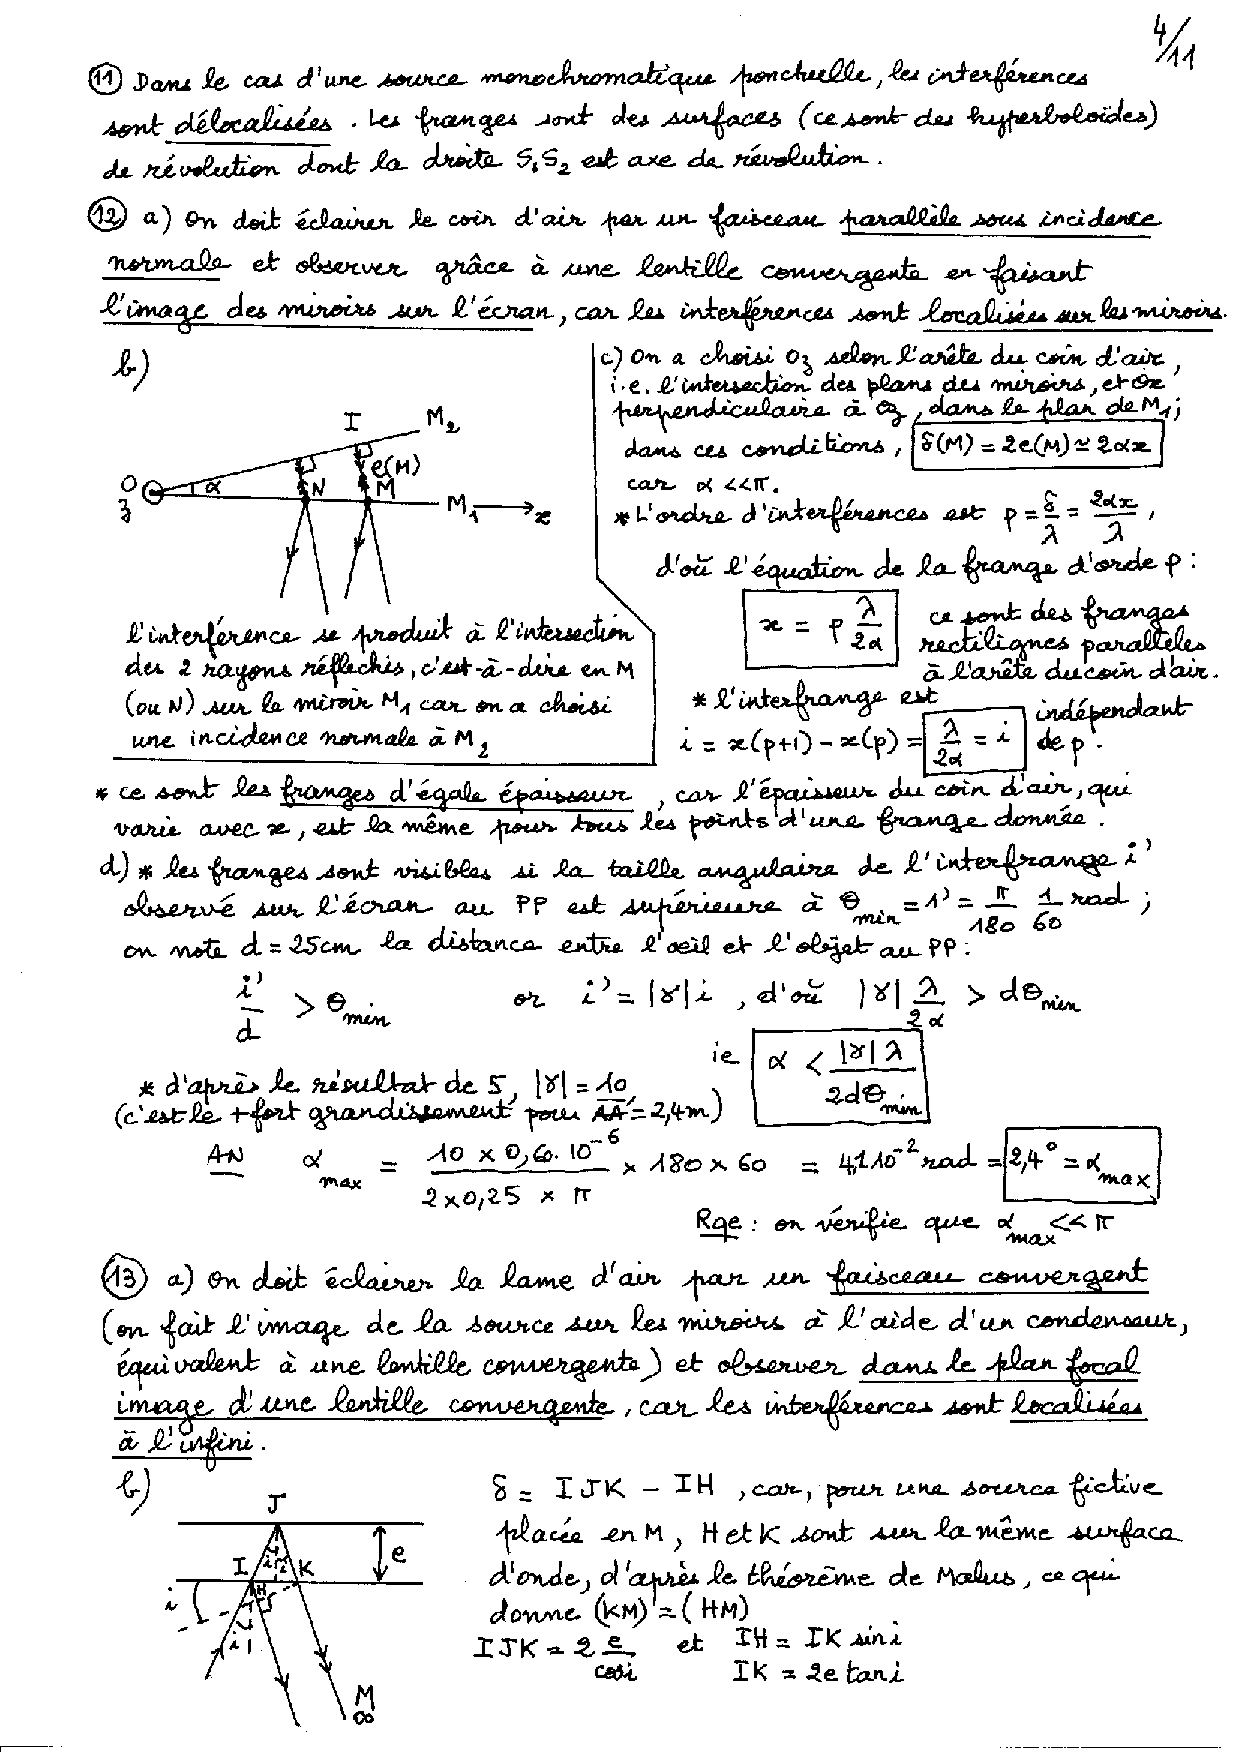 4/11
⑪ Dans le cas d'une source monochromatique ponctuelle, les interférences
sont délocalisées. Les franges sont des surfaces (ce sont des hyperboloïdes)
de révolution dont la droite S₁S₂ est axe de révolution.
⑫ a) On doit éclairer le coin d'air par un faisceau parallèle sous incidence
normale et observer grâce à une lentille convergente en faisant
l'image des miroirs sur l'écran, car les interférences sont localisées sur les miroirs.
b)
I M₂
e(M)
O α N M
z M₁ x
l'interférence se produit à l'intersection
des 2 rayons réfléchis, c'est-à-dire en M
(ou N) sur le miroir M₁ car on a choisi
une incidence normale à M₂
c) On a choisi Oz selon l'arête du coin d'air,
i.e. l'intersection des plans des miroirs, et Ox
perpendiculaire à Oz, dans le plan de M₁;
dans ces conditions, δ(M) = 2e(M) ≃ 2αx
car α <<π.
* L'ordre d'interférences est p = δ/λ = 2αx/λ,
d'où l'équation de la frange d'orde p :
x = p λ/2α ce sont des franges
rectilignes parallèles
à l'arête du coin d'air.
* l'interfrange est
i = x(p+1) - x(p) = λ/2α = i indépendant de p.
* ce sont les franges d'égale épaisseur, car l'épaisseur du coin d'air, qui
varie avec x, est la même pour tous les points d'une frange donnée.
d) * les franges sont visibles si la taille angulaire de l'interfrange i'
observé sur l'écran au PP est supérieure à θmin = 1' = π/180 1/60 rad ;
on note d = 25cm la distance entre l'oeil et l'objet au PP :
i'/d > θmin or i' = |γ|i, d'où |γ| λ/2α > dθmin
ie α < |γ|λ/2dθmin
* d'après le résultat de 5, |γ| = 10
(c'est le + fort grandissement pour AA' = 2,4m)
AN αmax = 10 × 0,60.10⁻⁶/2×0,25 × π × 180 × 60 = 4,1 10⁻² rad = 2,4° = αmax
Rqe : on vérifie que αmax << π
⑬ a) On doit éclairer la lame d'air par un faisceau convergent
(on fait l'image de la source sur les miroirs à l'aide d'un condenseur,
équivalent à une lentille convergente) et observer dans le plan focal
image d'une lentille convergente, car les interférences sont localisées
à l'infini.
b)
J
e
I i i K
H
i
i
M
∞
δ = IJK - IH, car, pour une source fictive
placée en M, H et K sont sur la même surface
d'onde, d'après le théorème de Malus, ce qui
donne (KM) = (HM)
IJK = 2 e/cosi et IH = IK sini
IK = 2e tani